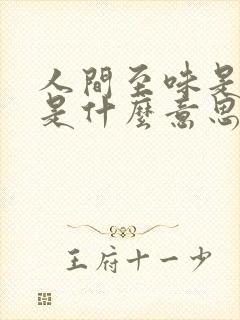 人間至味是
是什麼意思
王府十一少